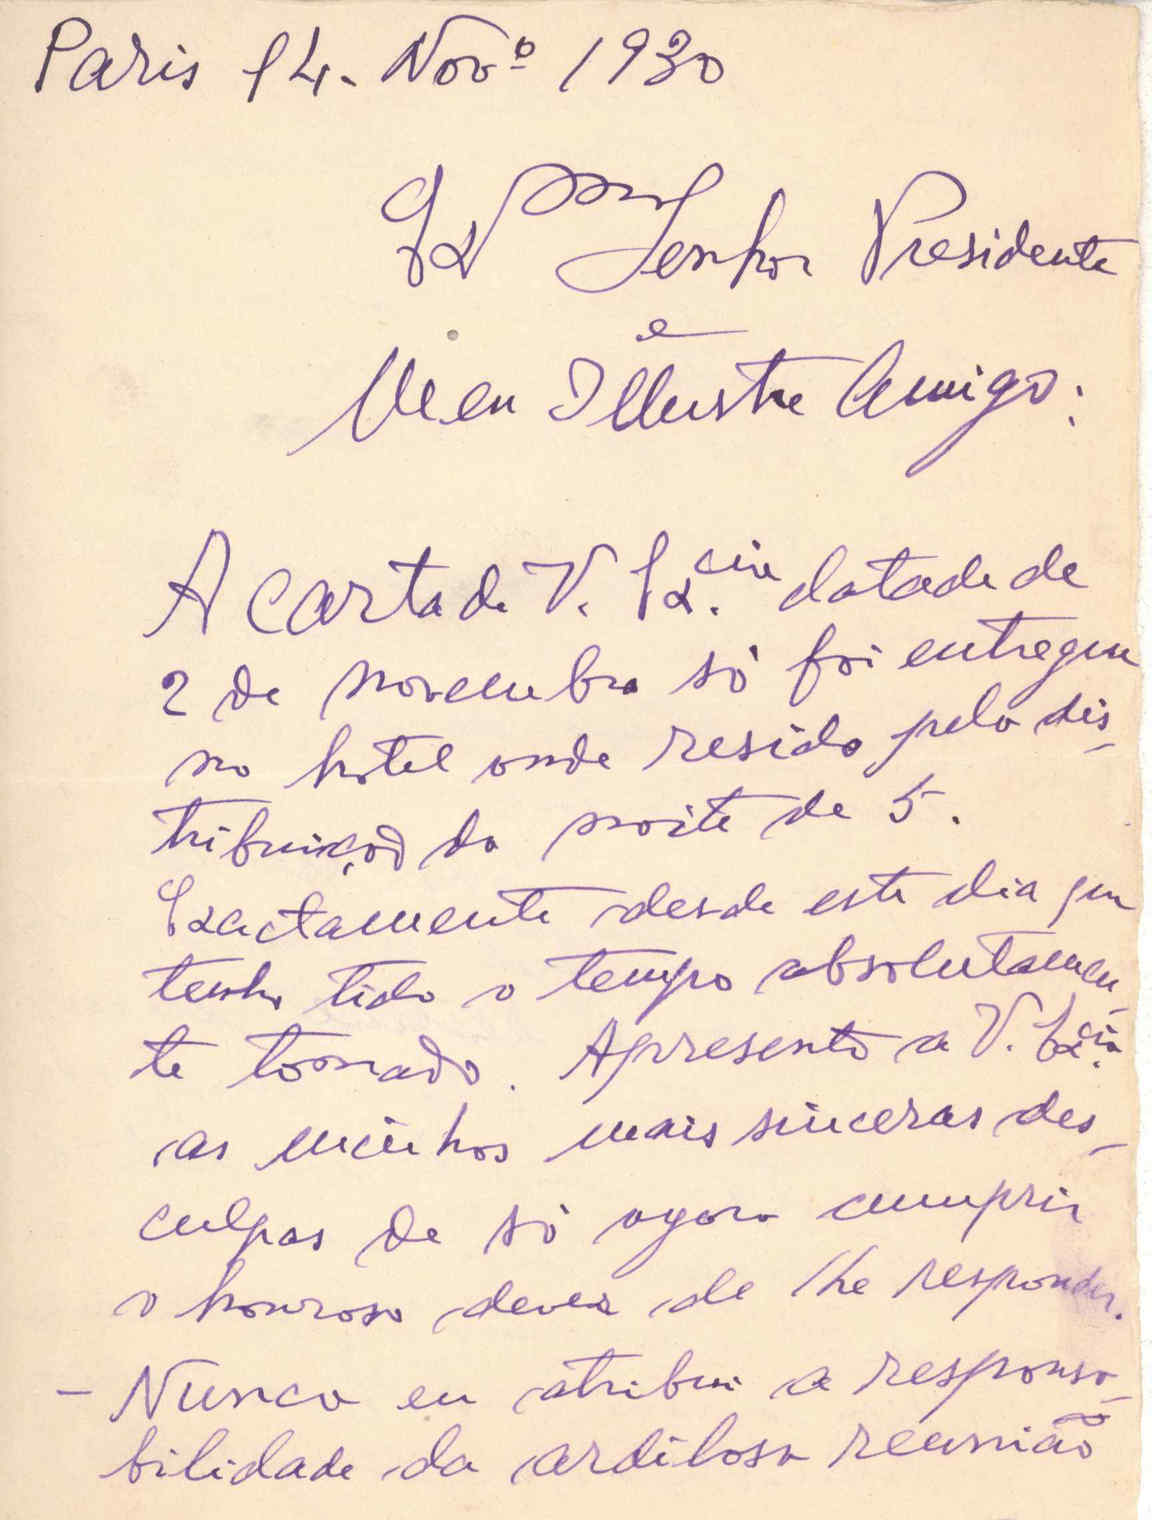 Paris 14. Novº 1930
Exmo Senhor Presidente
e
Meu Illustre Amigo:
A carta de V. Ex.cia datada de
2 de novembro só foi entregue
no hotel onde resido pela dis-
tribuição da noite de 5.
Exactamente desde este dia que
tenho tido o tempo absolutamen-
te tomado. Apresento a V. Excia.
as minhas mais sinceras des-
culpas de só agora cumprir
o honroso dever de lhe responder.
- Nunca eu atribui a responsa-
bilidade da ardilosa reunião